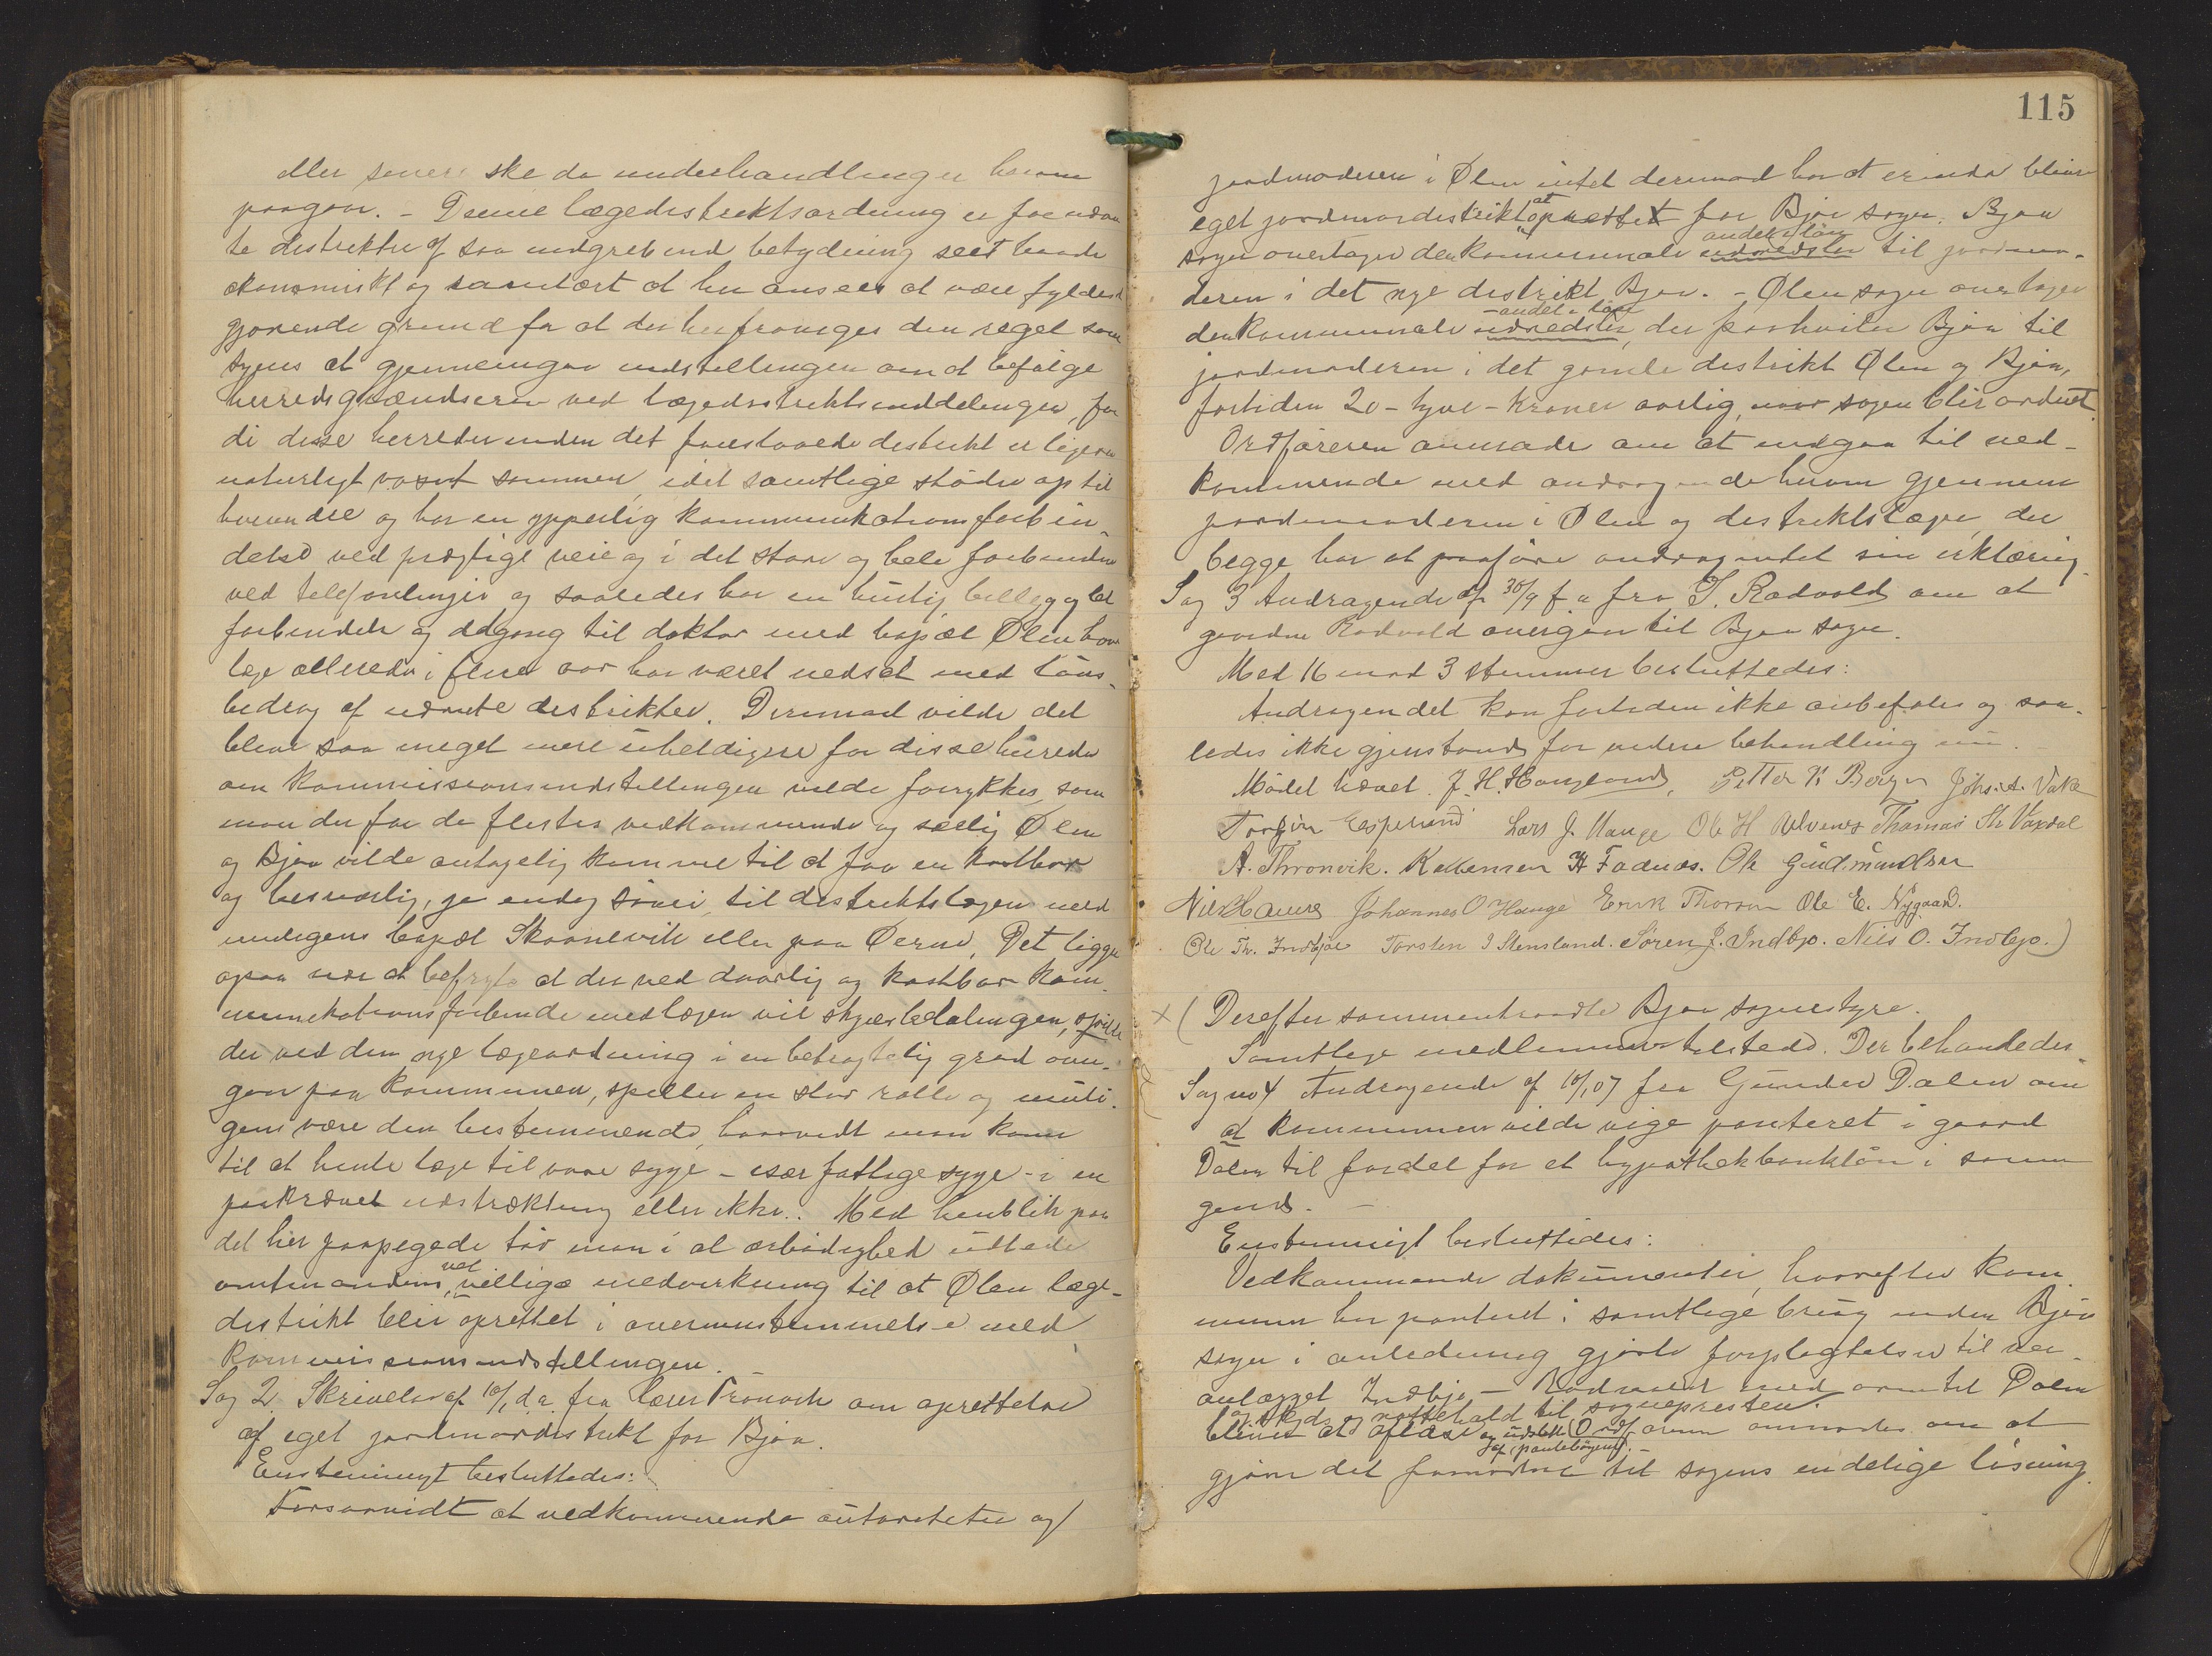 eller senere ske da underhandlinger herom
paagaar. - Denne lægedistriktsordning er for nævn
te distrikter af saa indgribende betydning seet baade
økonomiskt og sanitært at her ansees at være fyldest
gjørende grund for at der her fraviges den regel som
synes at gjennemgaa indstillingen om at befølge
herredsgrændserne ved lægedistriktsinddelingen, for
di disse herreder inden det foreslaaede distrikt er ligesom
naturligt voxet sammen, idet samtlige støder op til
hverandre og har en ypperlig kommunikationsforbin-
delse ved prægtige veie og i det store og hele forbundne
ved telefonlinjer og saaledes har en hurtig billig og let
forbindelse og adgang til doktor med bopæl Ølen hvor
læge allerede i flere aar har været nedsat med løns-
bidrag af nævnte distrikter. Derimod vilde det
blive saa meget mere uheldigere for disse herreder
om kommissionsindstillingen vilde forrykkes, som
man der for de flestes vedkommende og særlig Ølen
og Bjoa vilde antagelig komme til at faa en kostbar
og besværlig, ja endog søvei, til distriktslægen med
muligens bopæl Skaanevik eller paa Øerne. Det ligger
ogsaa nær at befrygte at der ved daarlig og kostbar kom-
munikationsforbindelse med lægen vil skydsbetalingen,
der ved den nye lægeordning i en betragtelig grad over-
gaar paa kommunen, spiller en stor rolle og muli-
gens være den bestemmende, hvorvidt man kom
til at hente læge til vore syge - især fattige syge - i en
paakrævet udstrækning eller ikke. Med henblik paa
det her paapegede tør man i al ærbødighed udbede
amtmandens vel villige medvirkning til at Ølen læge-
distrikt blir oprettet i overensstemmelse med
kommissionsindstillingen.
Sag 2 Skrivelse af 10/1 d.a. fra lærer Tronvik om oprettelse
af eget jordmordistrikt for Bjoa.
Enstemmigt besluttedes:
Forsaavidt at vedkommende autoriteter og
115
jordmoderen i Ølen intet dermod har at erindre blive
eget jordmordistrikt at oprettet for Bjoa sogn. Bjoa
sogn overtager den kommunale udredsler andel i løn til jordmo-
deren i det nye distrikt Bjoa. - Ølen sogn overtager
den kommunale udredsler - andel i løn, der paahviler Bjoa til
jordmoderen i det gamle distrikt Ølen og Bjoa,
fortiden 20 - tyve - kroner aarlig, naar sagen blir ordnet.
Ordføreren anmodes om at indgaa til ved-
kommende med andragende herom gjennem
jordmoderen i Ølen og distriktslæge, der
begge har at paaføre andragendet sin erklæring.
Sag 3 Andragende af 30/9 f.a. fra T. Rødvold om at
gaarden Rødvold overgaar til Bjoa sogn.
Med 16 mod 3 stemmer besluttedes:
Andragendet kan fortiden ikke anbefales og saa-
ledes ikke gjenstand for videre behandling nu.
Mødet hævet. J. H. Haugland, Petter K Berge Johs. A. Vaka
Torgir Espeland Lars J. Hauge Ole H Alvenes Thomas Th Vaxdal
A. Thronvik. K H Fadnes. Ole Gudmundsen
Nils Haure Johannes O Hauge Erik Thorson Ole E. Nygaard.
Ole Th. Indbjoe Torsten J Stensland. Søren J. Indbjo. Nils O. Indbjo.)
x ( Derefter sammentraadte Bjoa sognestyre.
Samtlige medlemmer tilstede. Der behandledes.
Sag no 4 Andragende af 10/1 07 fra Gunder Dalen om
at kommunen vilde vige panteret i gaard
Dalen til fordel for et hypothekbanklån i samme
gaard. -
Enstemmigt besluttedes:
Vedkommende dokumenter, hvorefter kom-
munen har panteret i samtlige brug inden Bjoa
sogn i anledning gjorte forpligtelser til vei-
anlægget Indbjo - Rødvold med arm til Dalen
og skyds og nattehold til sognepresten.
bliver at aflæse og udslette af pantebøgerne. Ordføreren anmodes om at
gjøre det fornødne til sagens endelige løsning.